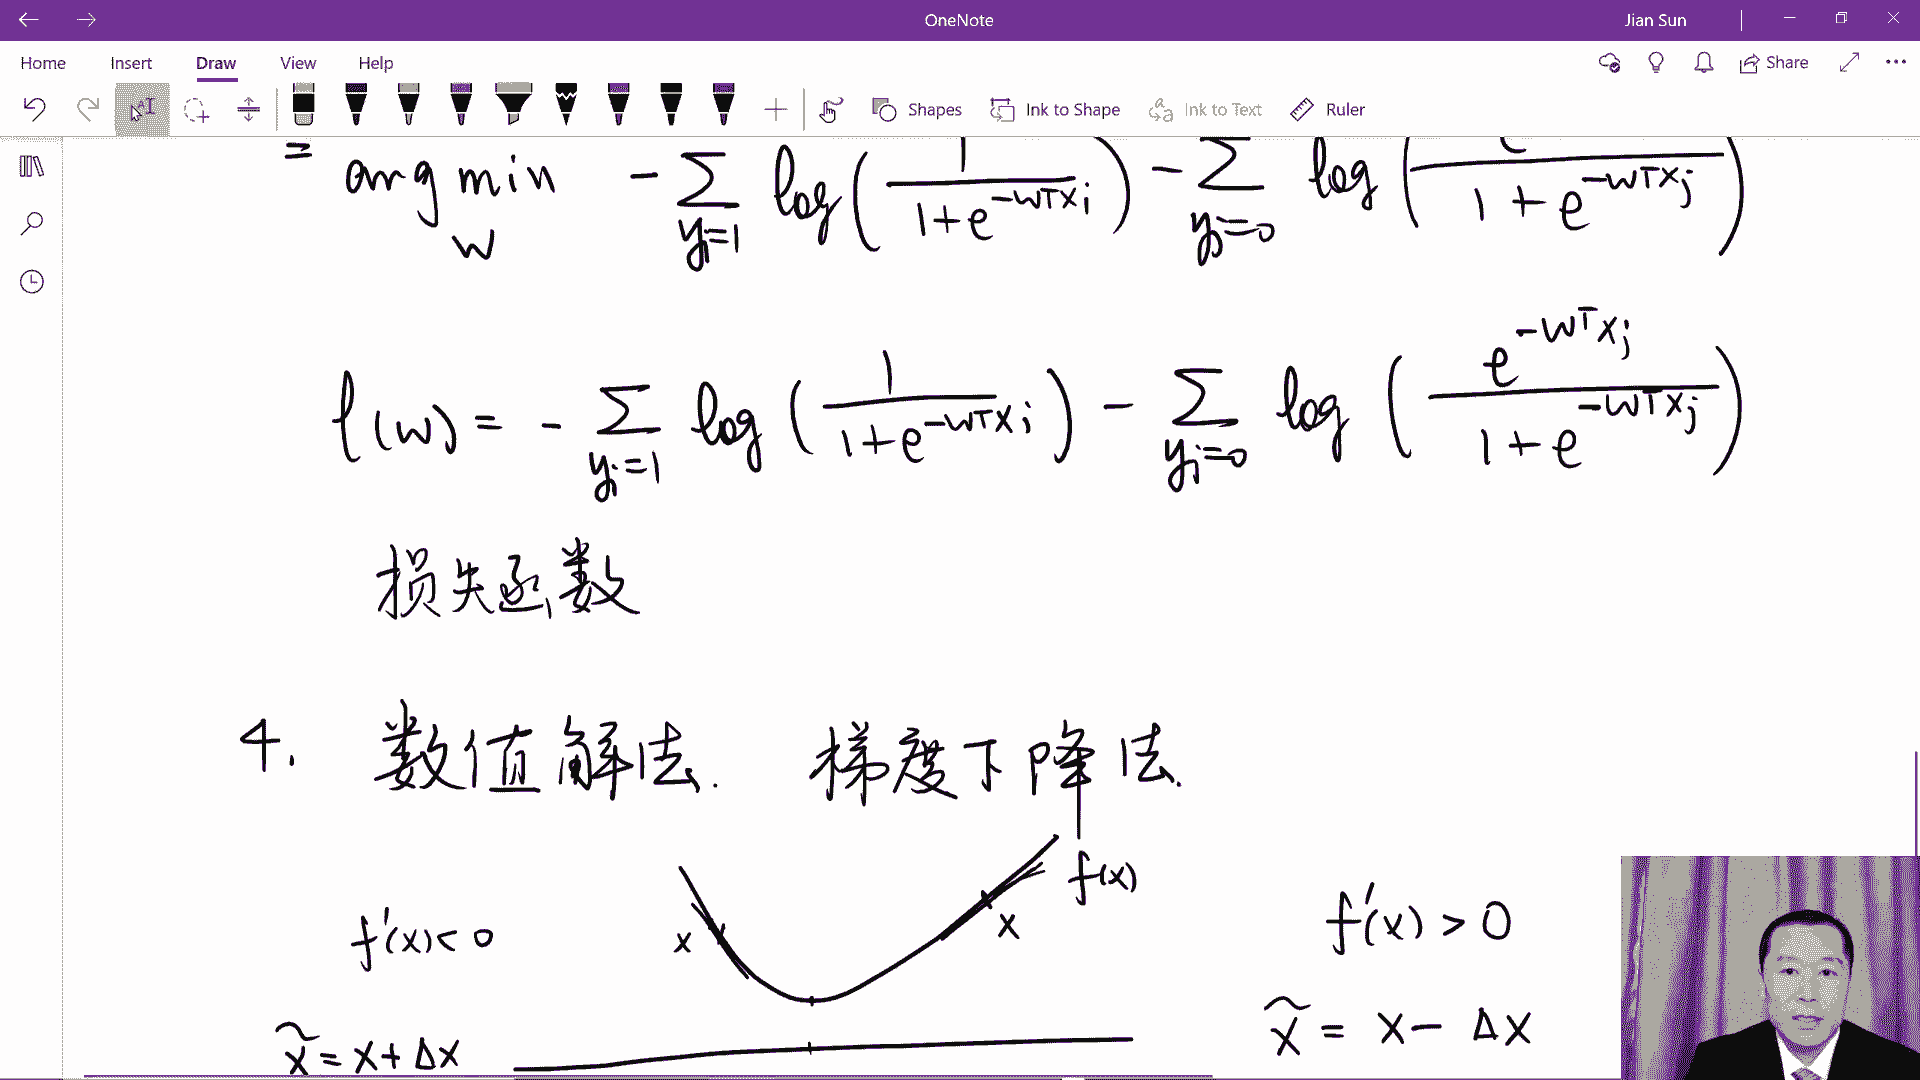 OneNote
Jian Sun
Home Insert Draw View Help
Share
Shapes Ink to Shape Ink to Text Ruler
= arg min − Σ log( 1 / 1+e^{-wᵀxᵢ} ) − Σ log( e / 1+e^{-wᵀxⱼ} )
w yᵢ=1 yⱼ=0
l(w) = − Σ log( 1 / 1+e^{-wᵀxᵢ} ) − Σ log( e^{-wᵀxⱼ} / 1+e^{-wᵀxⱼ} )
yᵢ=1 yⱼ=0
损失函数
4. 数值解法. 梯度下降法.
f(x)
x x
f'(x)<0
f'(x) > 0
x̃ = x+Δx
x̃ = x− Δx